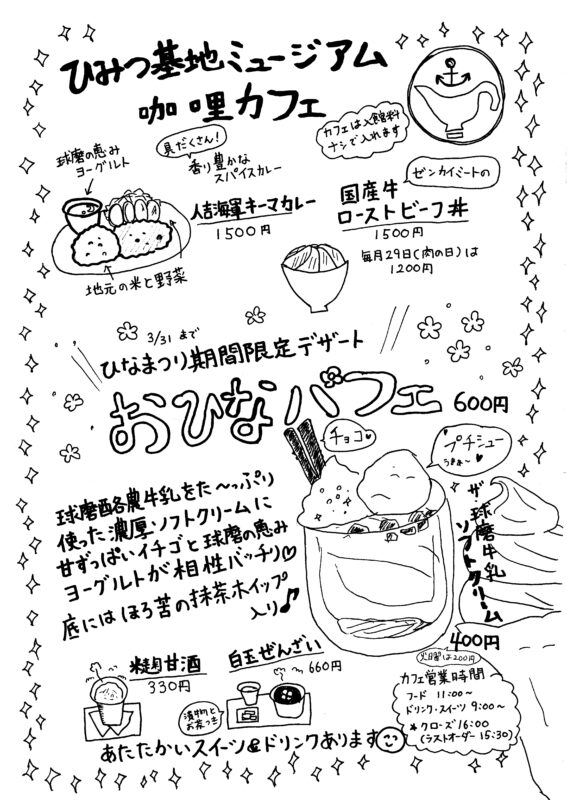 ひみつ基地ミュージアム
咖哩カフェ
カフェは入館料
ナシで入れます
球磨の恵み
ヨーグルト
具だくさん!
香り豊かな
スパイスカレー
人吉海軍キーマカレー
1500円
地元の米と野菜
ゼンカイミートの
国産牛
ローストビーフ丼
1500円
毎月29日(肉の日)は
1200円
3/31 まで
ひなまつり期間限定デザート
おひなパフェ 600円
チョコ
プチシュー
球磨酪農牛乳をた〜っぷり
使った濃厚ソフトクリームに
甘ずっぱいイチゴと球磨の恵み
ヨーグルトが相性バッチリ♡
底にはほろ苦の抹茶ホイップ
入り♪
ザ・球磨牛乳
ソフトクリーム
400円
火曜は200円
米麹甘酒
330円
白玉ぜんざい
660円
漬物と
お茶つき
あたたかいスイーツ&ドリンクあります
カフェ営業時間
フード 11:00〜
ドリンク・スイーツ 9:00〜
*クローズ16:00
(ラストオーダー 15:30)